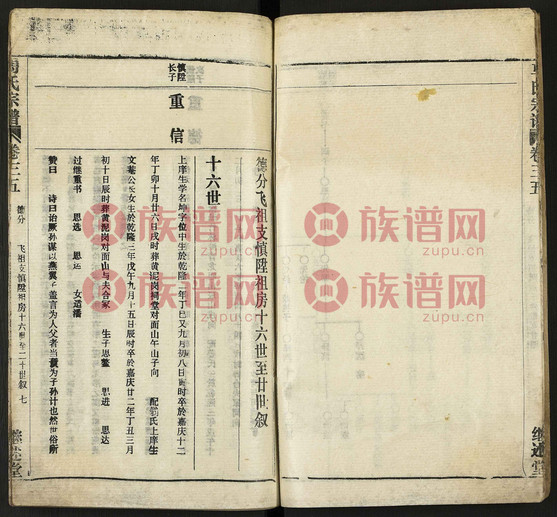 德分飞祖支慎陞祖房十六世至廿世叙
十六世
慎陞
长子
重信
上庠生学名坤字位中生於乾隆二年丁巳又九月初八日酉时卒於嘉庆十二
年丁卯十月廿六日戌时葬黄泥岗祠堂对面山午山子向 配郭氏上庠生
文菴公长女生於乾隆三年戊午九月十五日辰时卒於嘉庆廿二年丁丑三月
初十日辰时葬黄泥岗对面山与夫合冢 生子思鳌 思进 思达
过继重书 思选 思运 女适潘
赞曰 诗曰诒厥孙谋以燕翼子盖言为人父者当为子孙计也然世俗所
周氏宗谱
卷三五
德分 飞祖支慎陞祖房十六世至二十世叙 七
继述堂
氏宗谱
卷三五
继述堂
族谱网
zupu.cn
族谱网
zupu.cn
族谱网
zupu.cn
族谱网
zupu.cn